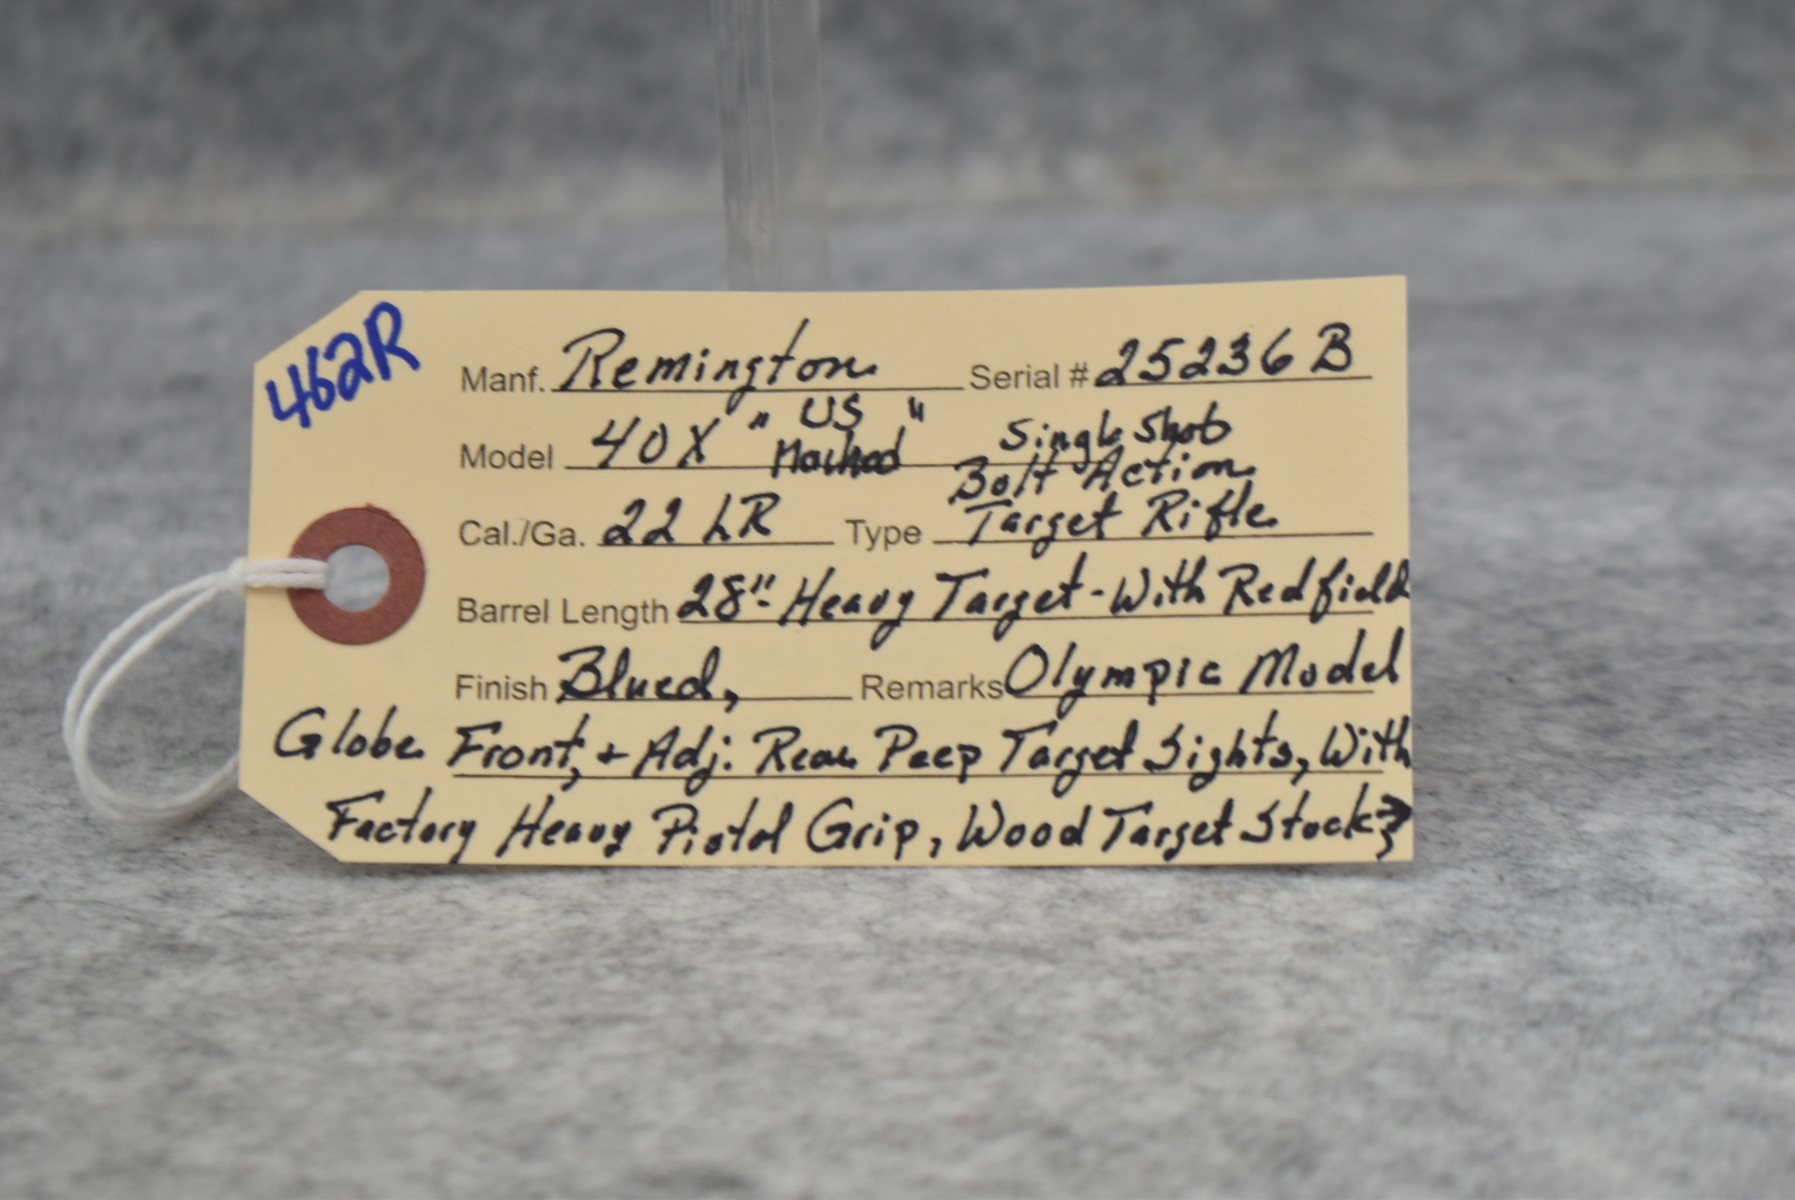 462R
Manf. Remington Serial # 25236 B
Model 40X "US Marked"
Single Shot
Bolt Action
Cal./Ga. 22 LR Type Target Rifle
Barrel Length 28" Heavy Target - With Redfield
Finish Blued, Remarks Olympic Model
Globe Front, + Adj. Rear Peep Target Sights, With
Factory Heavy Pistol Grip, Wood Target Stock, →